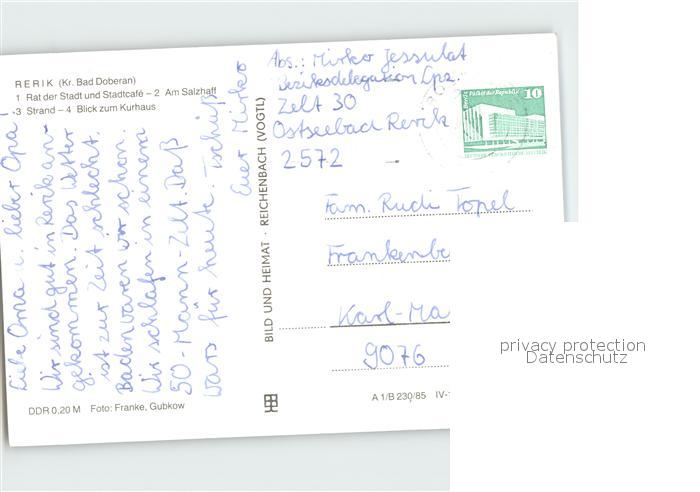 RERIK (Kr. Bad Doberan)
1 Rat der Stadt und Stadtcafé – 2 Am Salzhaff
3 Strand – 4 Blick zum Kurhaus
Liebe Oma u. lieber Opa!
Wir sind gut in Rerik an-
gekommen. Das Wetter
ist zur Zeit schlecht.
Baden waren wir schon.
Wir schlafen in einem
50-Mann-Zelt. Daß
wars für heute. Tschüß
Euer Mirko
DDR 0,20 M Foto: Franke, Gubkow
BILD UND HEIMAT · REICHENBACH (VOGTL)
Abs.: Mirko Jessulat
Bezirksdelegation Lpz.
Zelt 30
Ostseebad Rerik
2572
Palast der Republik
10
Fam. Rudi Topel
Frankenbe
Karl-Ma
9076
A 1/B 230/85 IV-
privacy protection
Datenschutz